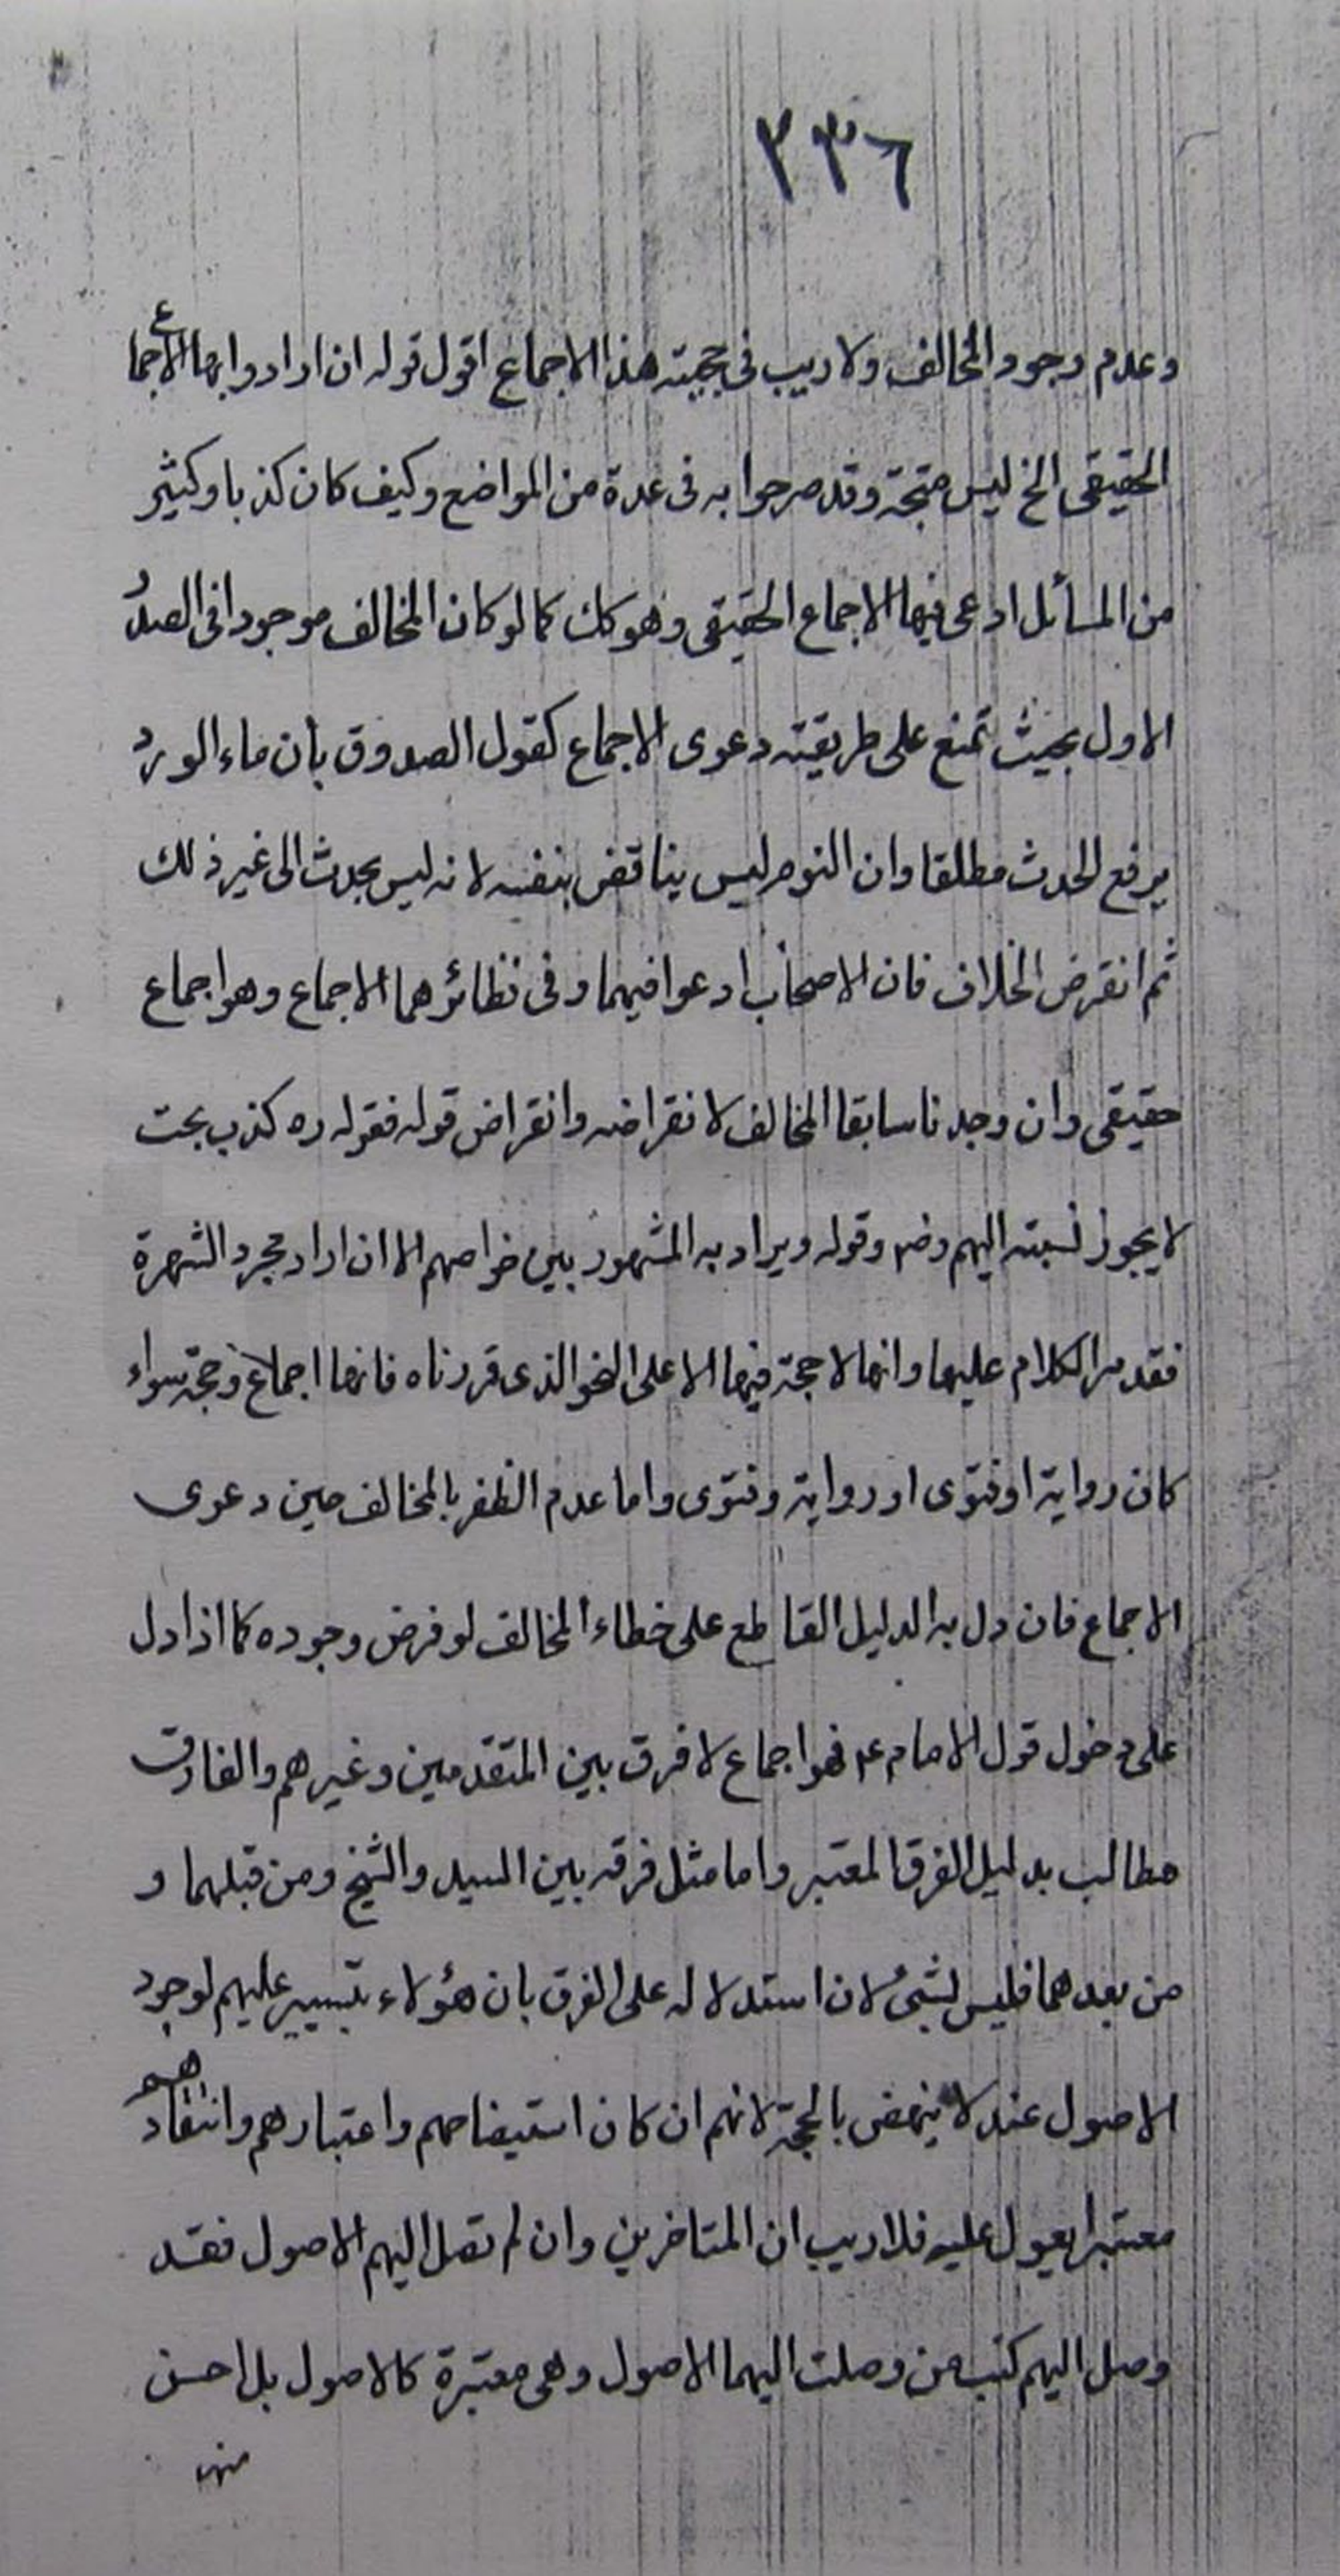 ٢٣٦
وعدم وجود المخالف ولا ريب في حجيته هذا الاجماع اقول قوله ان ارادوا بها الاجماع
الحقيقي الخ ليس متجة وقد صرحوا به في عدة من المواضع وكيف كان كذبا وكثير
من المسائل ادعى فيها الاجماع الحقيقي وهو كك كما لو كان المخالف موجودا في الصدر
الاول بحيث تمنع على طريقته دعوى الاجماع كقول الصدوق بأن ماء الورد
يرفع الحدث مطلقا وان النوم ليس يناقض بنفسه لانه ليس بحدث الى غير ذلك
ثم انقرض الخلاف فان الاصحاب ادعوا فيهما وفي نظائرهما الاجماع وهو اجماع
حقيقي وان وجدنا سابقا المخالف لانقراضه وانقراض قوله فقوله ره كذب بحت
لا يجوز نسبته اليهم رض وقوله ويراد به المشهور بين خواصهم الا ان اراد مجرد الشهرة
فقد مر الكلام عليها وانها لا حجة فيها الا على النحو الذي قررناه فانها اجماع وحجة سواء
كان رواية او فتوى او رواية وفتوى واما عدم الظفر بالمخالف حين دعوى
الاجماع فان دل به الدليل القاطع على خطاء المخالف لو فرض وجوده كما اذا دل
على دخول قول الامام ع فهو اجماع لا فرق بين المتقدمين وغيرهم والفارق
مطالب بدليل الفرق المعتبر واما مثل فرقه بين السيد والشيخ ومن قبلهما و
من بعدهما فليس لشئ لان استدلاله على الفرق بان هؤلاء يتيسر عليهم لوجود
الاصول عند لا ينهض بالحجة لانهم ان كان استيضاحهم واعتبارهم وانتقادهم
معتبرا يعول عليه فلا ريب ان المتاخرين وان لم تصل اليهم الاصول فقد
وصل اليهم كتب من وصلت اليهما الاصول وهي معتبرة كالاصول بل احسن
منها